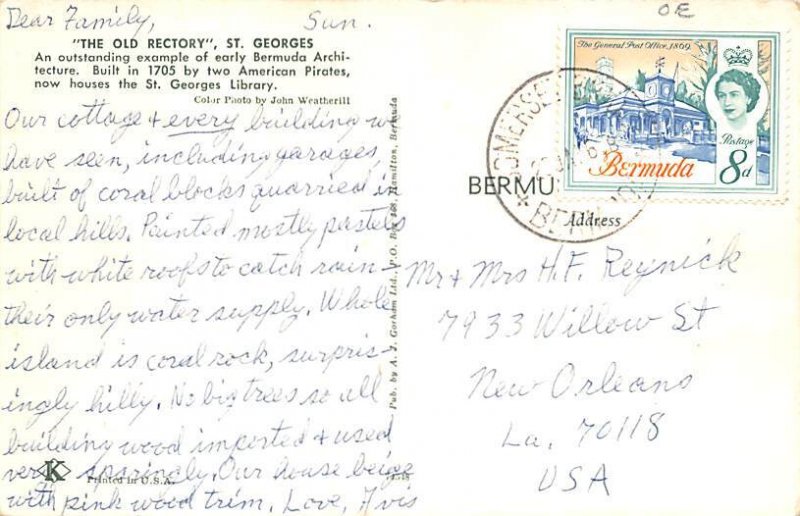 Dear Family, Sun.
"THE OLD RECTORY", ST. GEORGES
An outstanding example of early Bermuda Archi-
tecture. Built in 1705 by two American Pirates,
now houses the St. Georges Library.
Color Photo by John Weatherill
Our cottage & every building we
have seen, including garages,
built of coral blocks quarried in
local hills. Painted mostly pastels
with white roofs to catch rain-
their only water supply. Whole
island is coral rock, surpris-
ingly hilly. No big trees so all
building wood imported & used
very sparingly. Our house beige
with pink wood trim. Love, Avis
K
Printed in U.S.A.
Pub. by A. J. Gorham Ltd., P.O. Box 468, Hamilton, Bermuda
OE
The General Post Office, 1869.
Postage
Bermuda
8d
SOMERSET
BERMU
Address
Mr & Mrs H.F. Reynick
7933 Willow St
New Orleans
La. 70118
USA